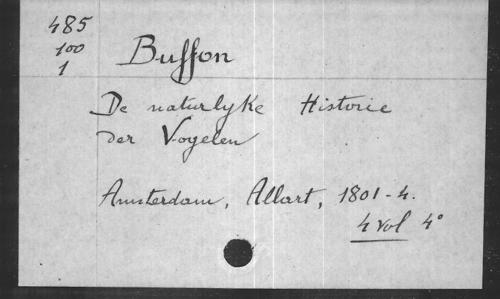 485
100
1
Buffon
De naturlyke Historie
der Vogelen
Amsterdam, Allart, 1801-4.
4 vol 4°